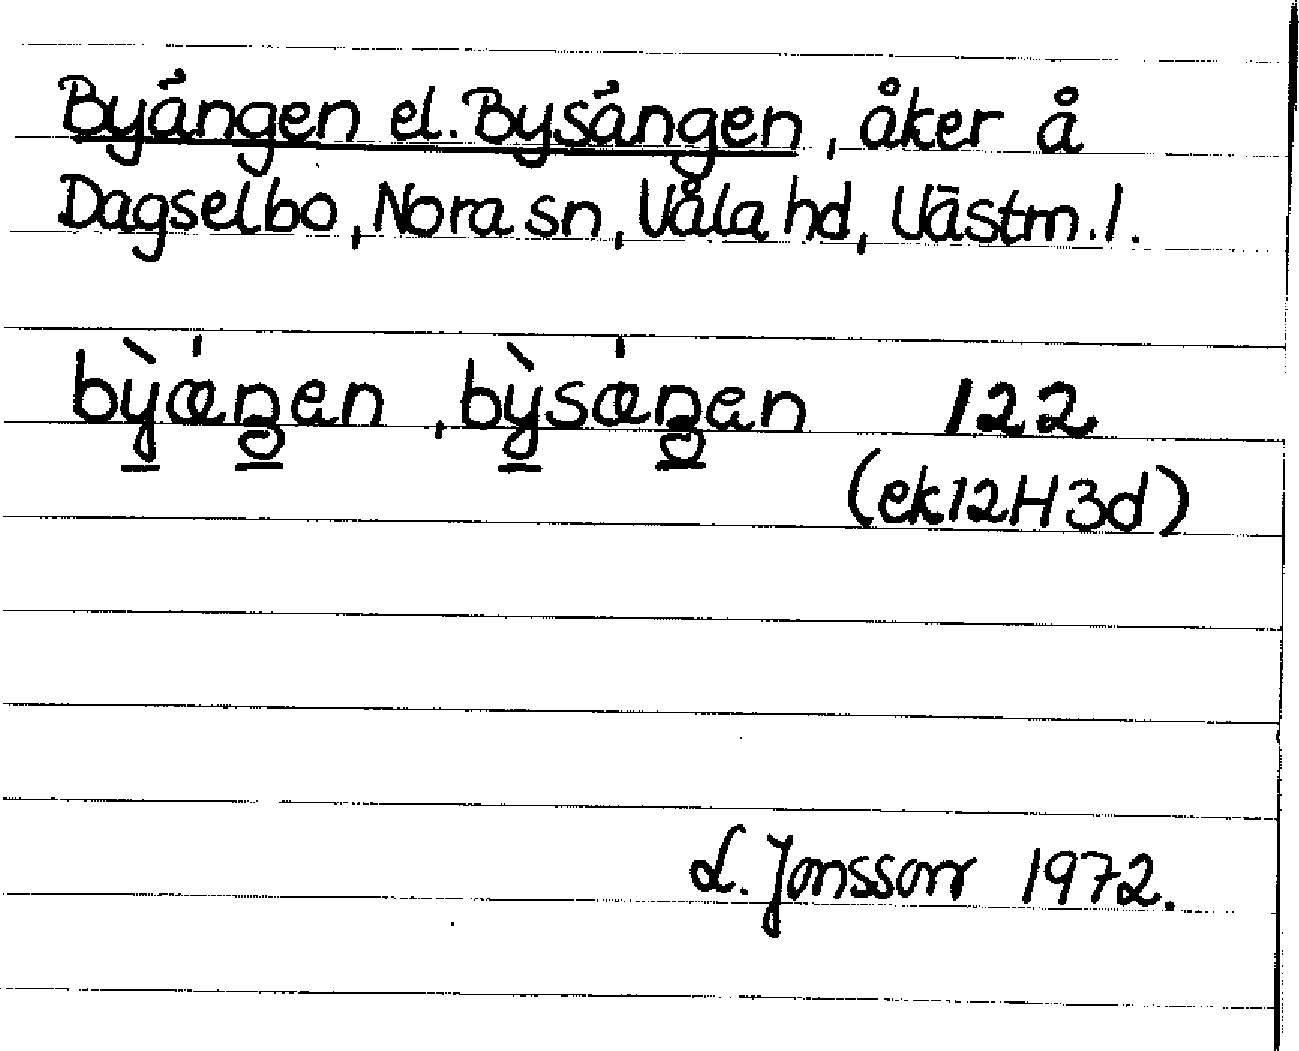 Byängen el. Bysängen, åker å
Dagselbo, Nora sn, Våla hd, Västm. l.
bỳæ̍ŋen, bỳsæ̍ŋen 122
(ek 12H3d)
L. Jonsson 1972.